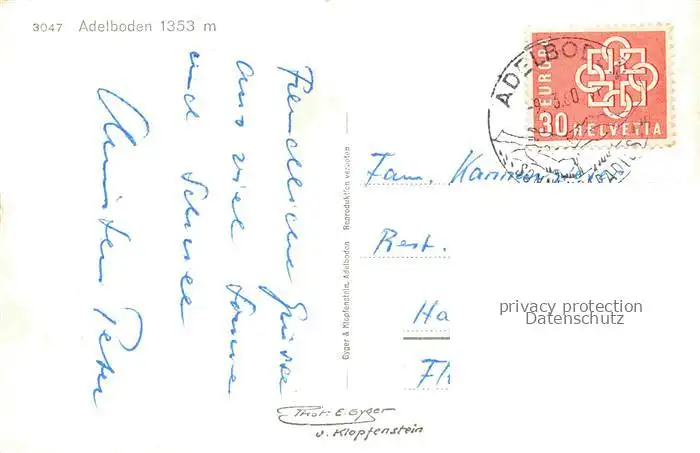 3047 Adelboden 1353 m
Freundliche Grüsse
aus viel Sonne
und Schnee
Peter
Gyger & Klopfenstein, Adelboden Reproduktion verboten
ADELBODEN
EUROPA
30 HELVETIA
Fam.
Rest.
Ha
Fl
privacy protection
Datenschutz
Phot: E. Gyger
u. Klopfenstein